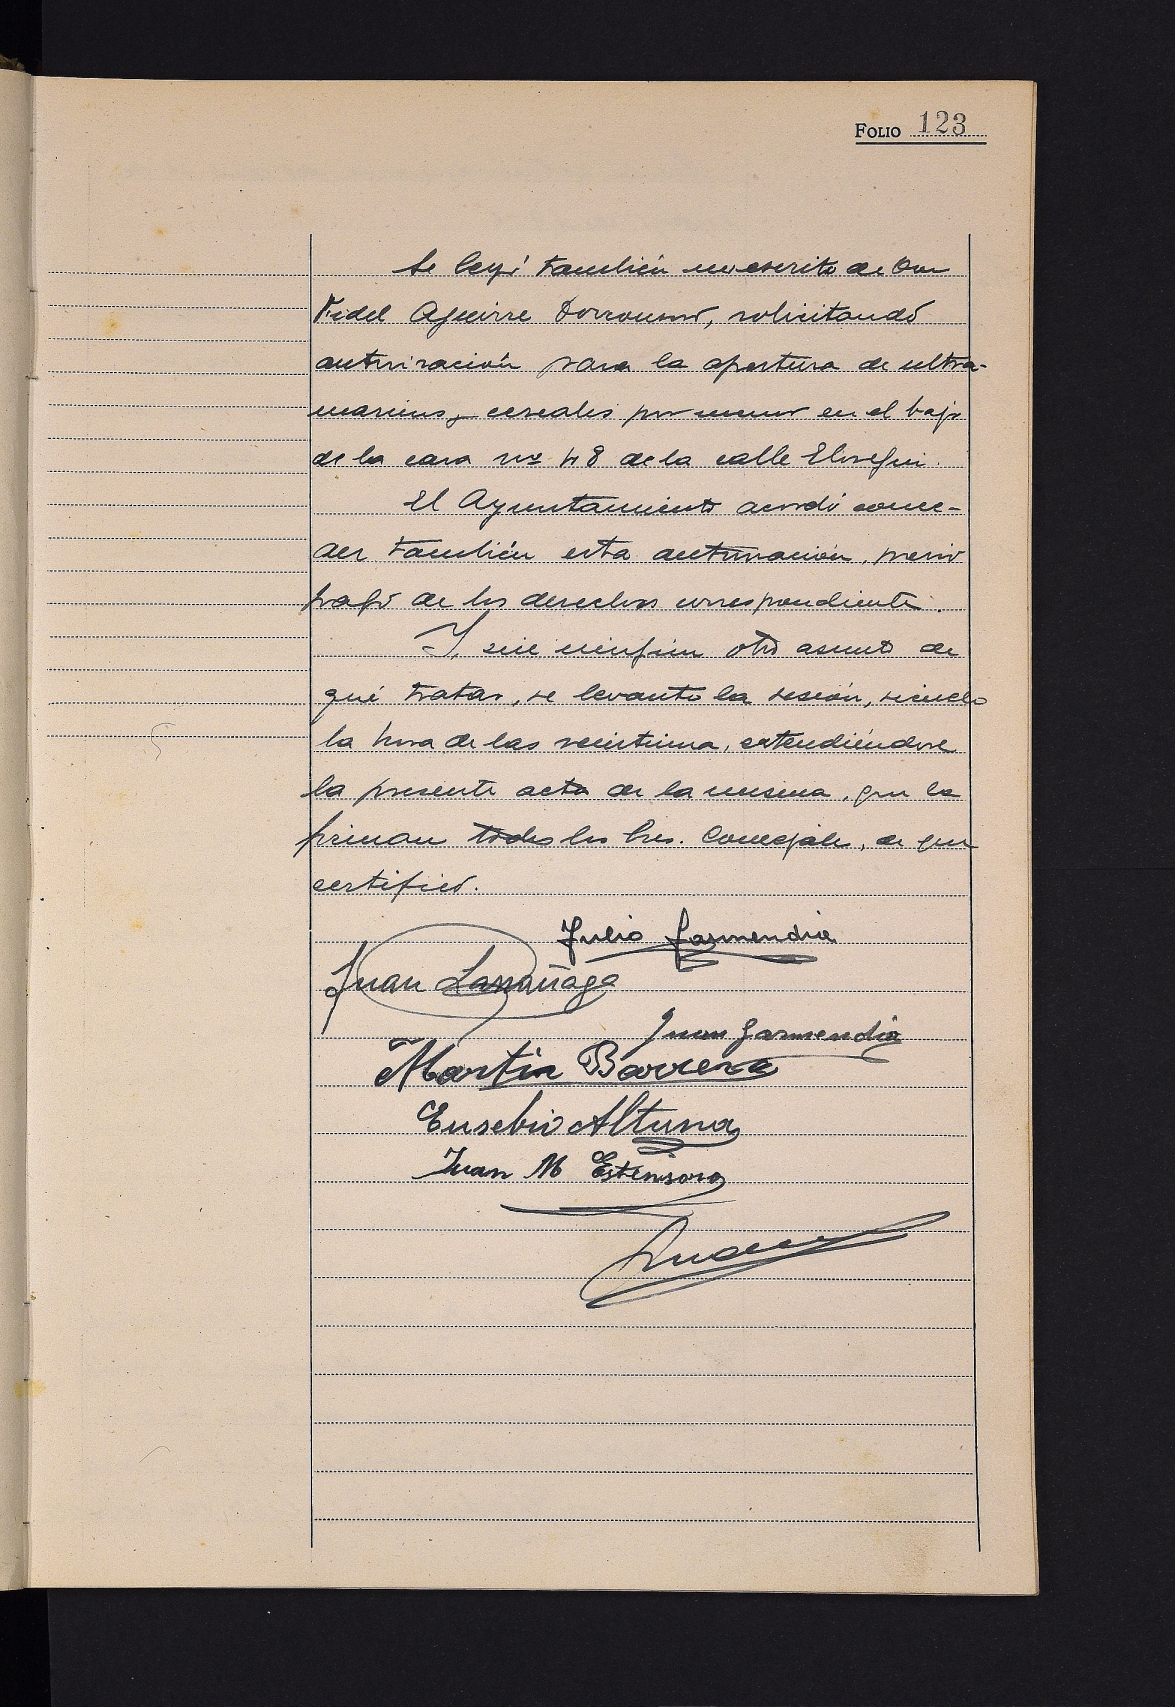 FOLIO 123
Se leyó también un escrito de Don
Fidel Aguirre Dorronsoro, solicitando
autorización para la apertura de ultra-
marinos y cereales por menor en el bajo
de la casa nº 48 de la calle Elosegui.
El Ayuntamiento acordó conce-
der también esta autorización, previo
pago de los derechos correspondiente.
Y, sin ningún otro asunto de
qué tratar, se levantó la sesión, siendo
la hora de las veintiuna, extendiéndose
la presente acta de la misma, que la
firman todos los Sres. Concejales, de que
certifico.
Julio Garmendia
Juan Larrañaga
Juan Garmendia
Martin Barrera
Eusebio Altuna
Juan M Estensoro